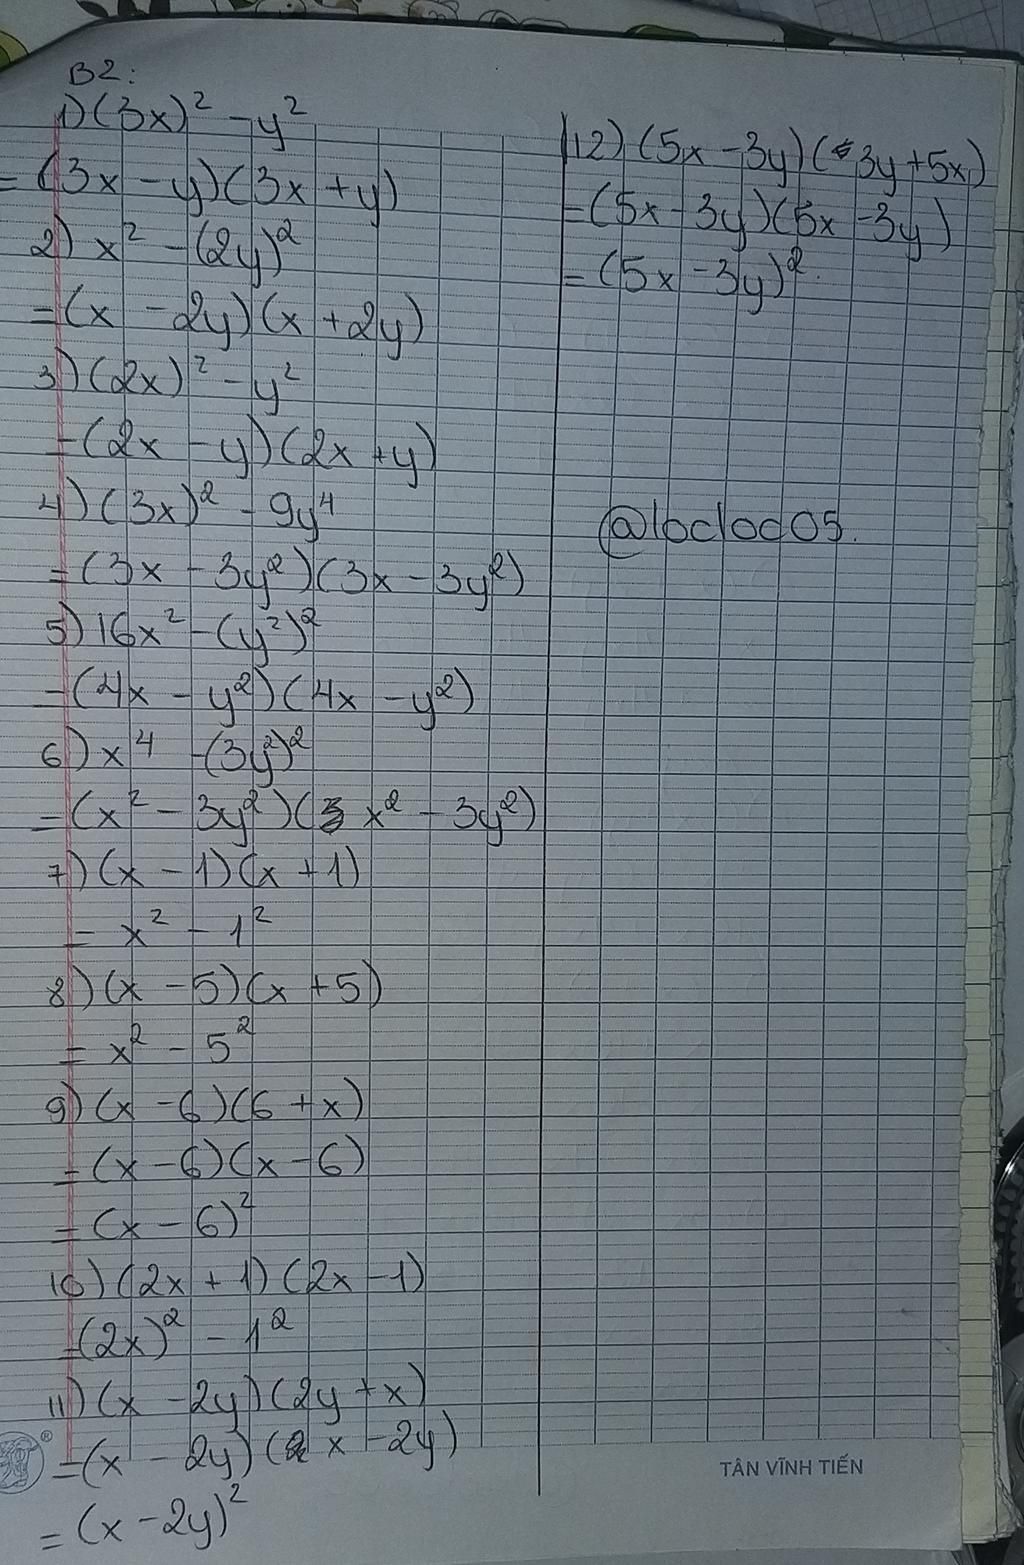 B2:
1) (3x)² - y²
= (3x - y)(3x + y)
2) x² - (2y)²
= (x - 2y)(x + 2y)
3) (2x)² - y²
= (2x - y)(2x + y)
4) (3x)² - 9y⁴
= (3x - 3y²)(3x - 3y²)
5) 16x² - (y²)²
= (4x - y²)(4x - y²)
6) x⁴ - (3y²)²
= (x² - 3y²)(x² - 3y²)
7) (x - 1)(x + 1)
= x² - 1²
8) (x - 5)(x + 5)
= x² - 5²
9) (x - 6)(6 + x)
= (x - 6)(x - 6)
= (x - 6)²
10) (2x + 1)(2x - 1)
= (2x)² - 1²
11) (x - 2y)(2y + x)
= (x - 2y)(x - 2y)
= (x - 2y)²
12) (5x - 3y)(3y + 5x)
= (5x - 3y)(5x - 3y)
= (5x - 3y)².
@locloc05.
TÂN VĨNH TIẾN